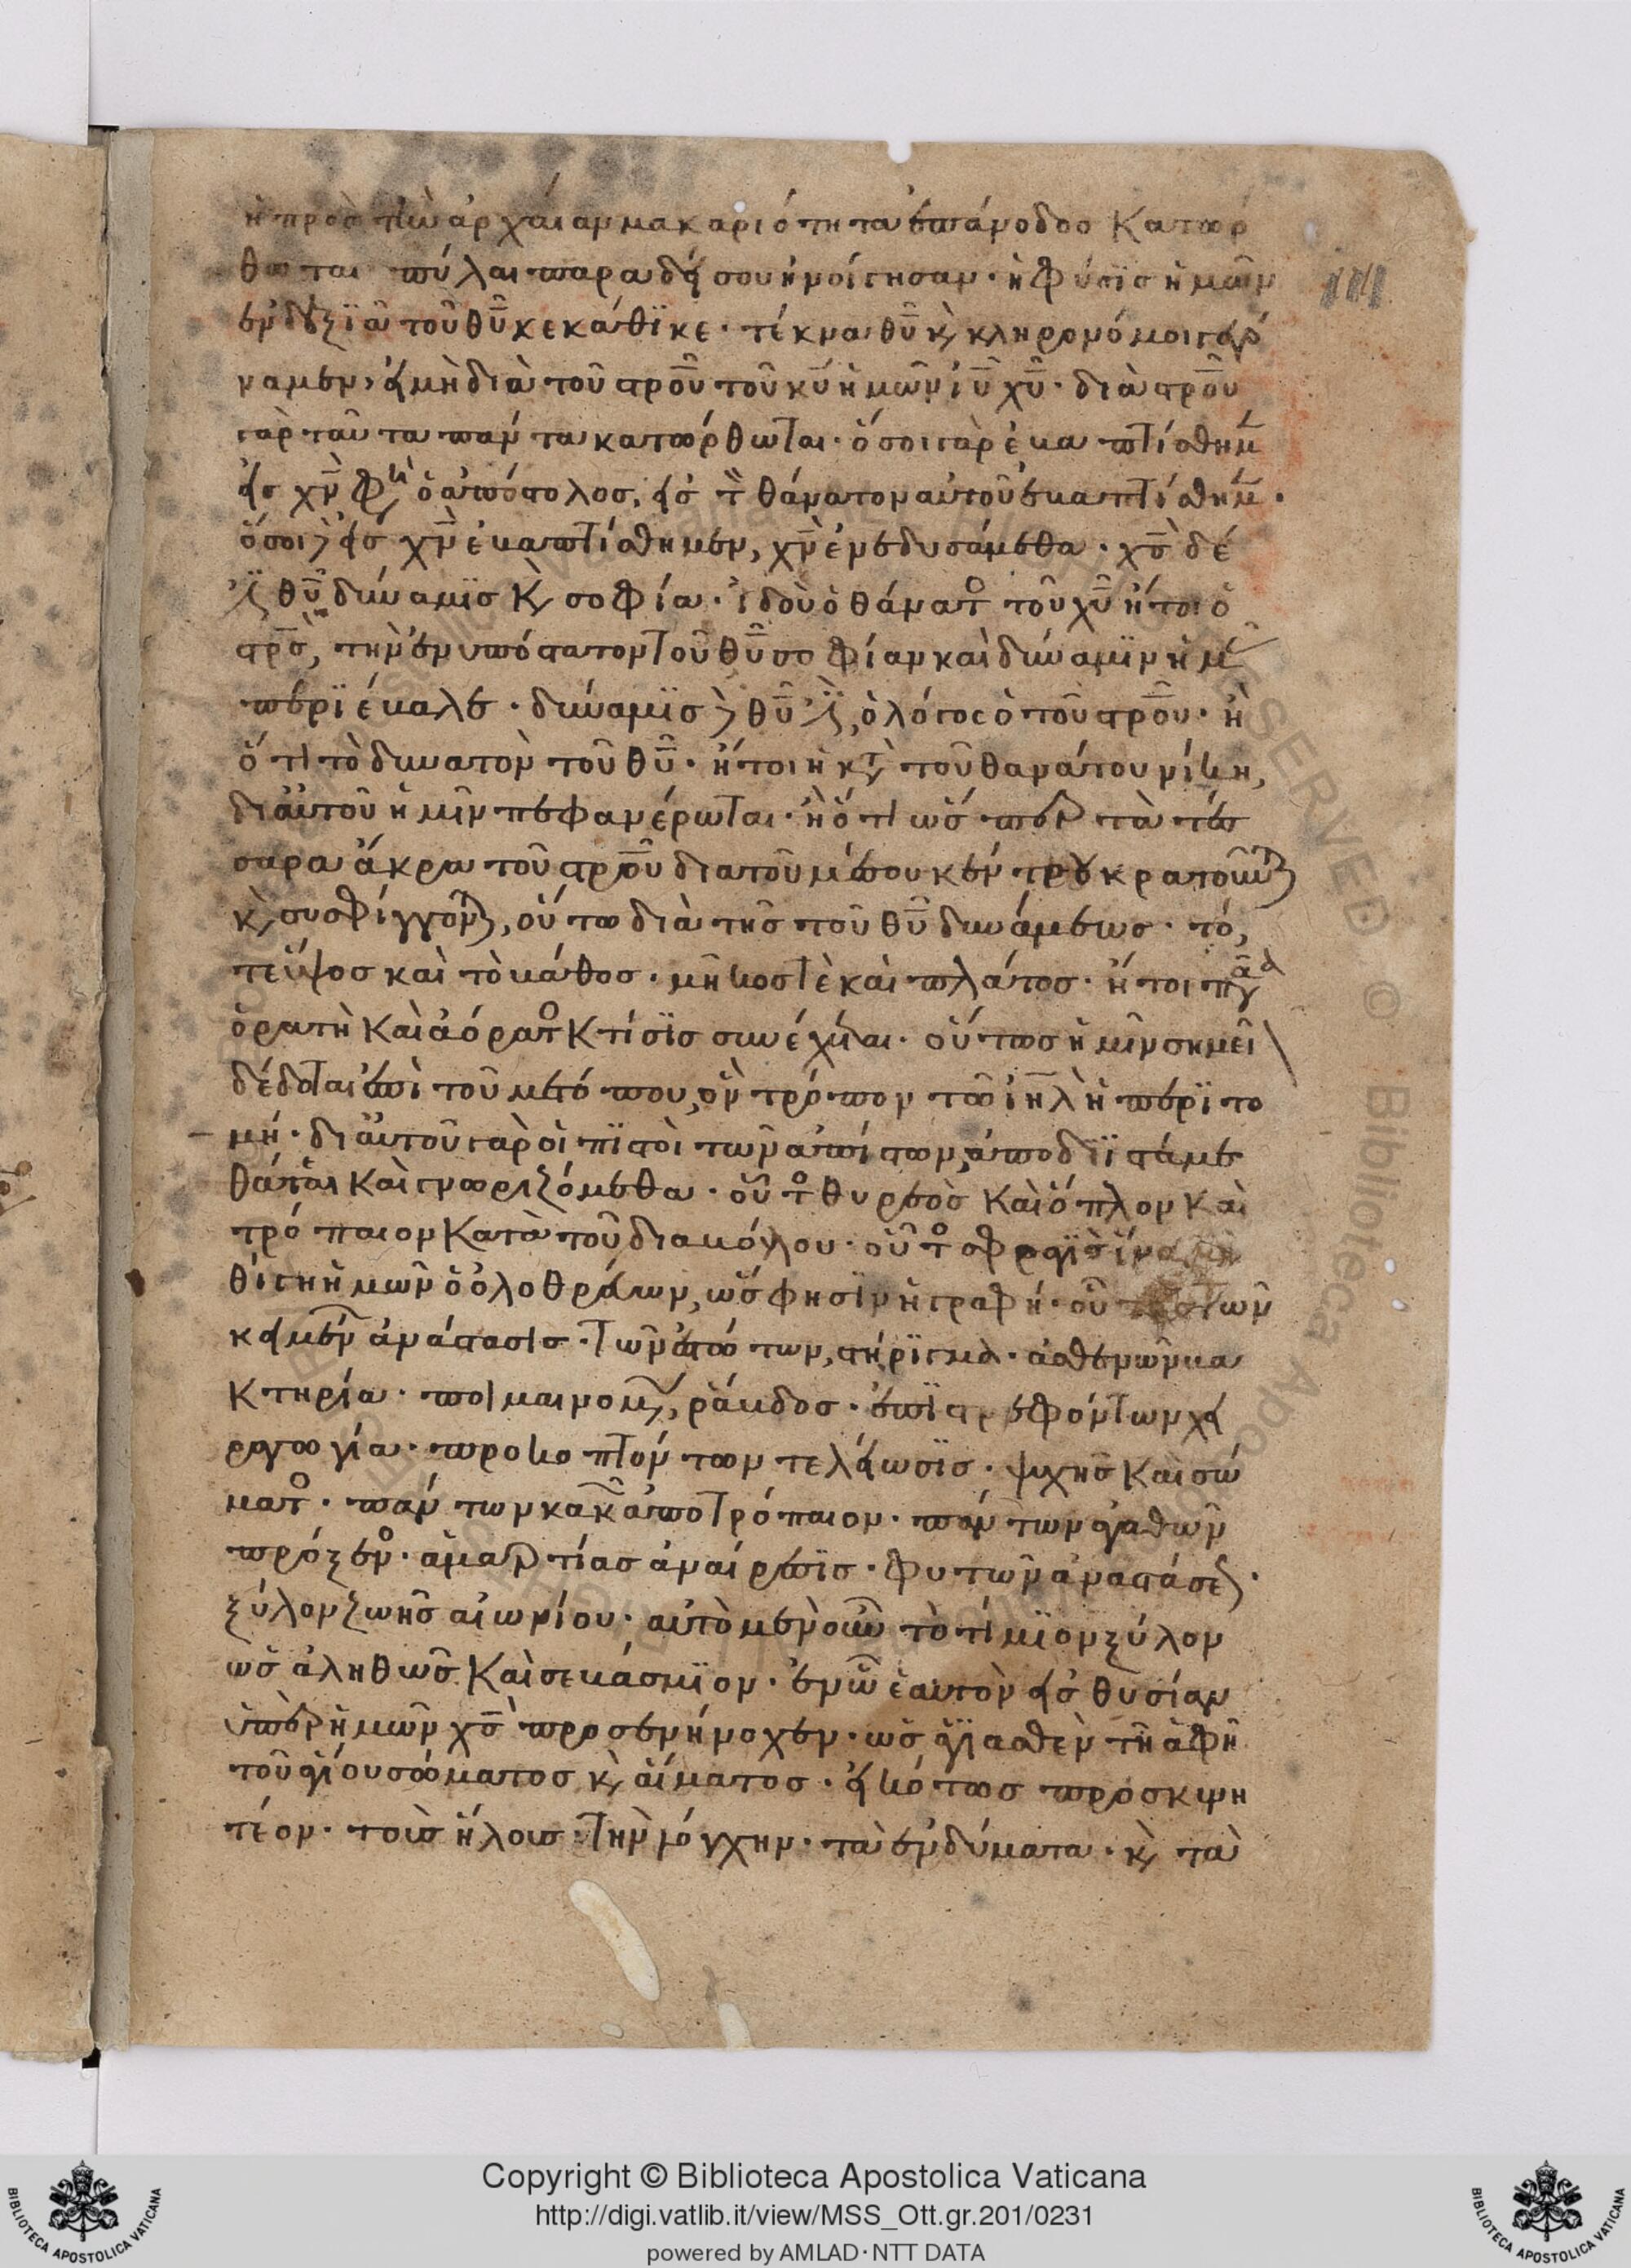 ἡ πρὸσ τὴν ἀρχαίαν μακαριότητα ἐπάνοδοσ κατώρ
θωται πύλαι παραδείσου ἠνοίγησαν· ἡ φύσϊσ ἡμῶν
ἐν δεξϊᾶ τοῦ θῦ κεκάθϊκε· τέκνα θῦ κ̀ κληρονόμοι γεγό
ναμεν, εἰ μὴ διὰ τοῦ στροῦ τοῦ κῦ ἡμῶν ἰῦ χῦ· διὰ στροῦ
γὰρ ταῦτα πάντα κατώρθωται· ὅσοι γὰρ ἐβαπτίσθημ
εἰσ χν φη ὁ ἀπόστολοσ, εἰσ τ θάνατον αὐτοῦ ἐβαπτίσθημ·
ὅσοι δ εἰσ χν ἐβαπτίσθημεν, χν ἐνεδυσάμεθα· χσ δέ
ἐστι θῦ δύναμϊσ κ̀ σοφία· ἰδοὺ ὁ θάνατο τοῦ χῦ ἤτοι ὁ
στρσ, τὴν ἐνυπόστατον τοῦ θῦ σοφίαν καὶ δύναμϊν ἡμ
περϊέβαλε· δύναμϊσ δ θῦ ἐστι, ὁ λόγοσ ὁ τοῦ στροῦ· ἢ
ὅτι τὸ δυνατὸν τοῦ θῦ· ἤτοι ἡ κτ τοῦ θανάτου νίκη,
δι αὐτοῦ ἡμῖν πεφανέρωται· ἢ ὅτι ὥσπερ τὰ τέσ
σαρα ἄκρα τοῦ στροῦ δια τοῦ μέσου κέντρου κρατοῦντ
κ̀ συσφίγγοντ, οὕτω διὰ τῆσ τοῦ θῦ δυνάμεωσ· τό,
τε ὕψοσ καὶ τὸ βάθοσ· μῆκοσ τὲ καὶ πλάτοσ· ἤτοι πᾶσα
ὁρατὴ καὶ ἀόρατο κτίσϊσ συνέχεται· οὕτωσ ἡμῖν σημεῖ
δέδοται ἐπὶ τοῦ μετώπου, ὃν τρόπον τῶ ἰηλ ἡ περϊτο
μή· δι αὐτοῦ γὰρ οἱ πϊστοὶ τῶν ἀπίστων, ἀποδϊϊστάμε
θά τε καὶ γνωριζόμεθα· οὗτο θυρεὸσ καὶ ὅπλον καὶ
τρόπαιον κατὰ τοῦ διαβόλου· οὗτο σφραγϊσ ἵνα μὴ
θίγη ἡμῶν ὁ ὀλοθρεύων, ὥσ φησϊν ἡ γραφή· οὗτοσ τῶν
κειμένων ἀνάστασισ· τῶν ἑστώτων, στήρϊγμα· ἀσθενῶν βα
κτηρία· ποιμαινομ, ράβδοσ· ἐπϊστρεφόντων χει
ραγωγία· προκοπτόντων τελείωσϊσ· ψυχῆσ καὶ σώ
ματο· πάντων κακῶν ἀποτρόπαιον· πάντων ἀγαθῶν
πρόξενο· ἁμαρτίασ ἀναίρεσϊσ· φυτῶν ἀναστάσε·
ξύλον ζωῆσ αἰωνίου· αὐτὸ μὲν οὖν τὸ τίμϊον ξύλον
ὡσ ἀληθῶσ καὶ σεβάσμϊον· ἐν ὧ ἑαυτὸν εἰσ θυσίαν
ὑπὲρ ἡμῶν χσ προσενήνοχεν· ὡσ ἁγϊασθὲν τῆ ἁφῆ
τοῦ ἁγίου σώματοσ κ̀ αἵματοσ· εἰκότωσ προσκυνη
τέον· τοὺσ ἥλουσ· τὴν λόγχην· τὰ ἐνδύματα· κ̀ τὰ
Copyright © Biblioteca Apostolica Vaticana
http://digi.vatlib.it/view/MSS_Ott.gr.201/0231
powered by AMLAD·NTT DATA
BIBLIOTECA APOSTOLICA VATICANA
BIBLIOTECA APOSTOLICA VATICANA